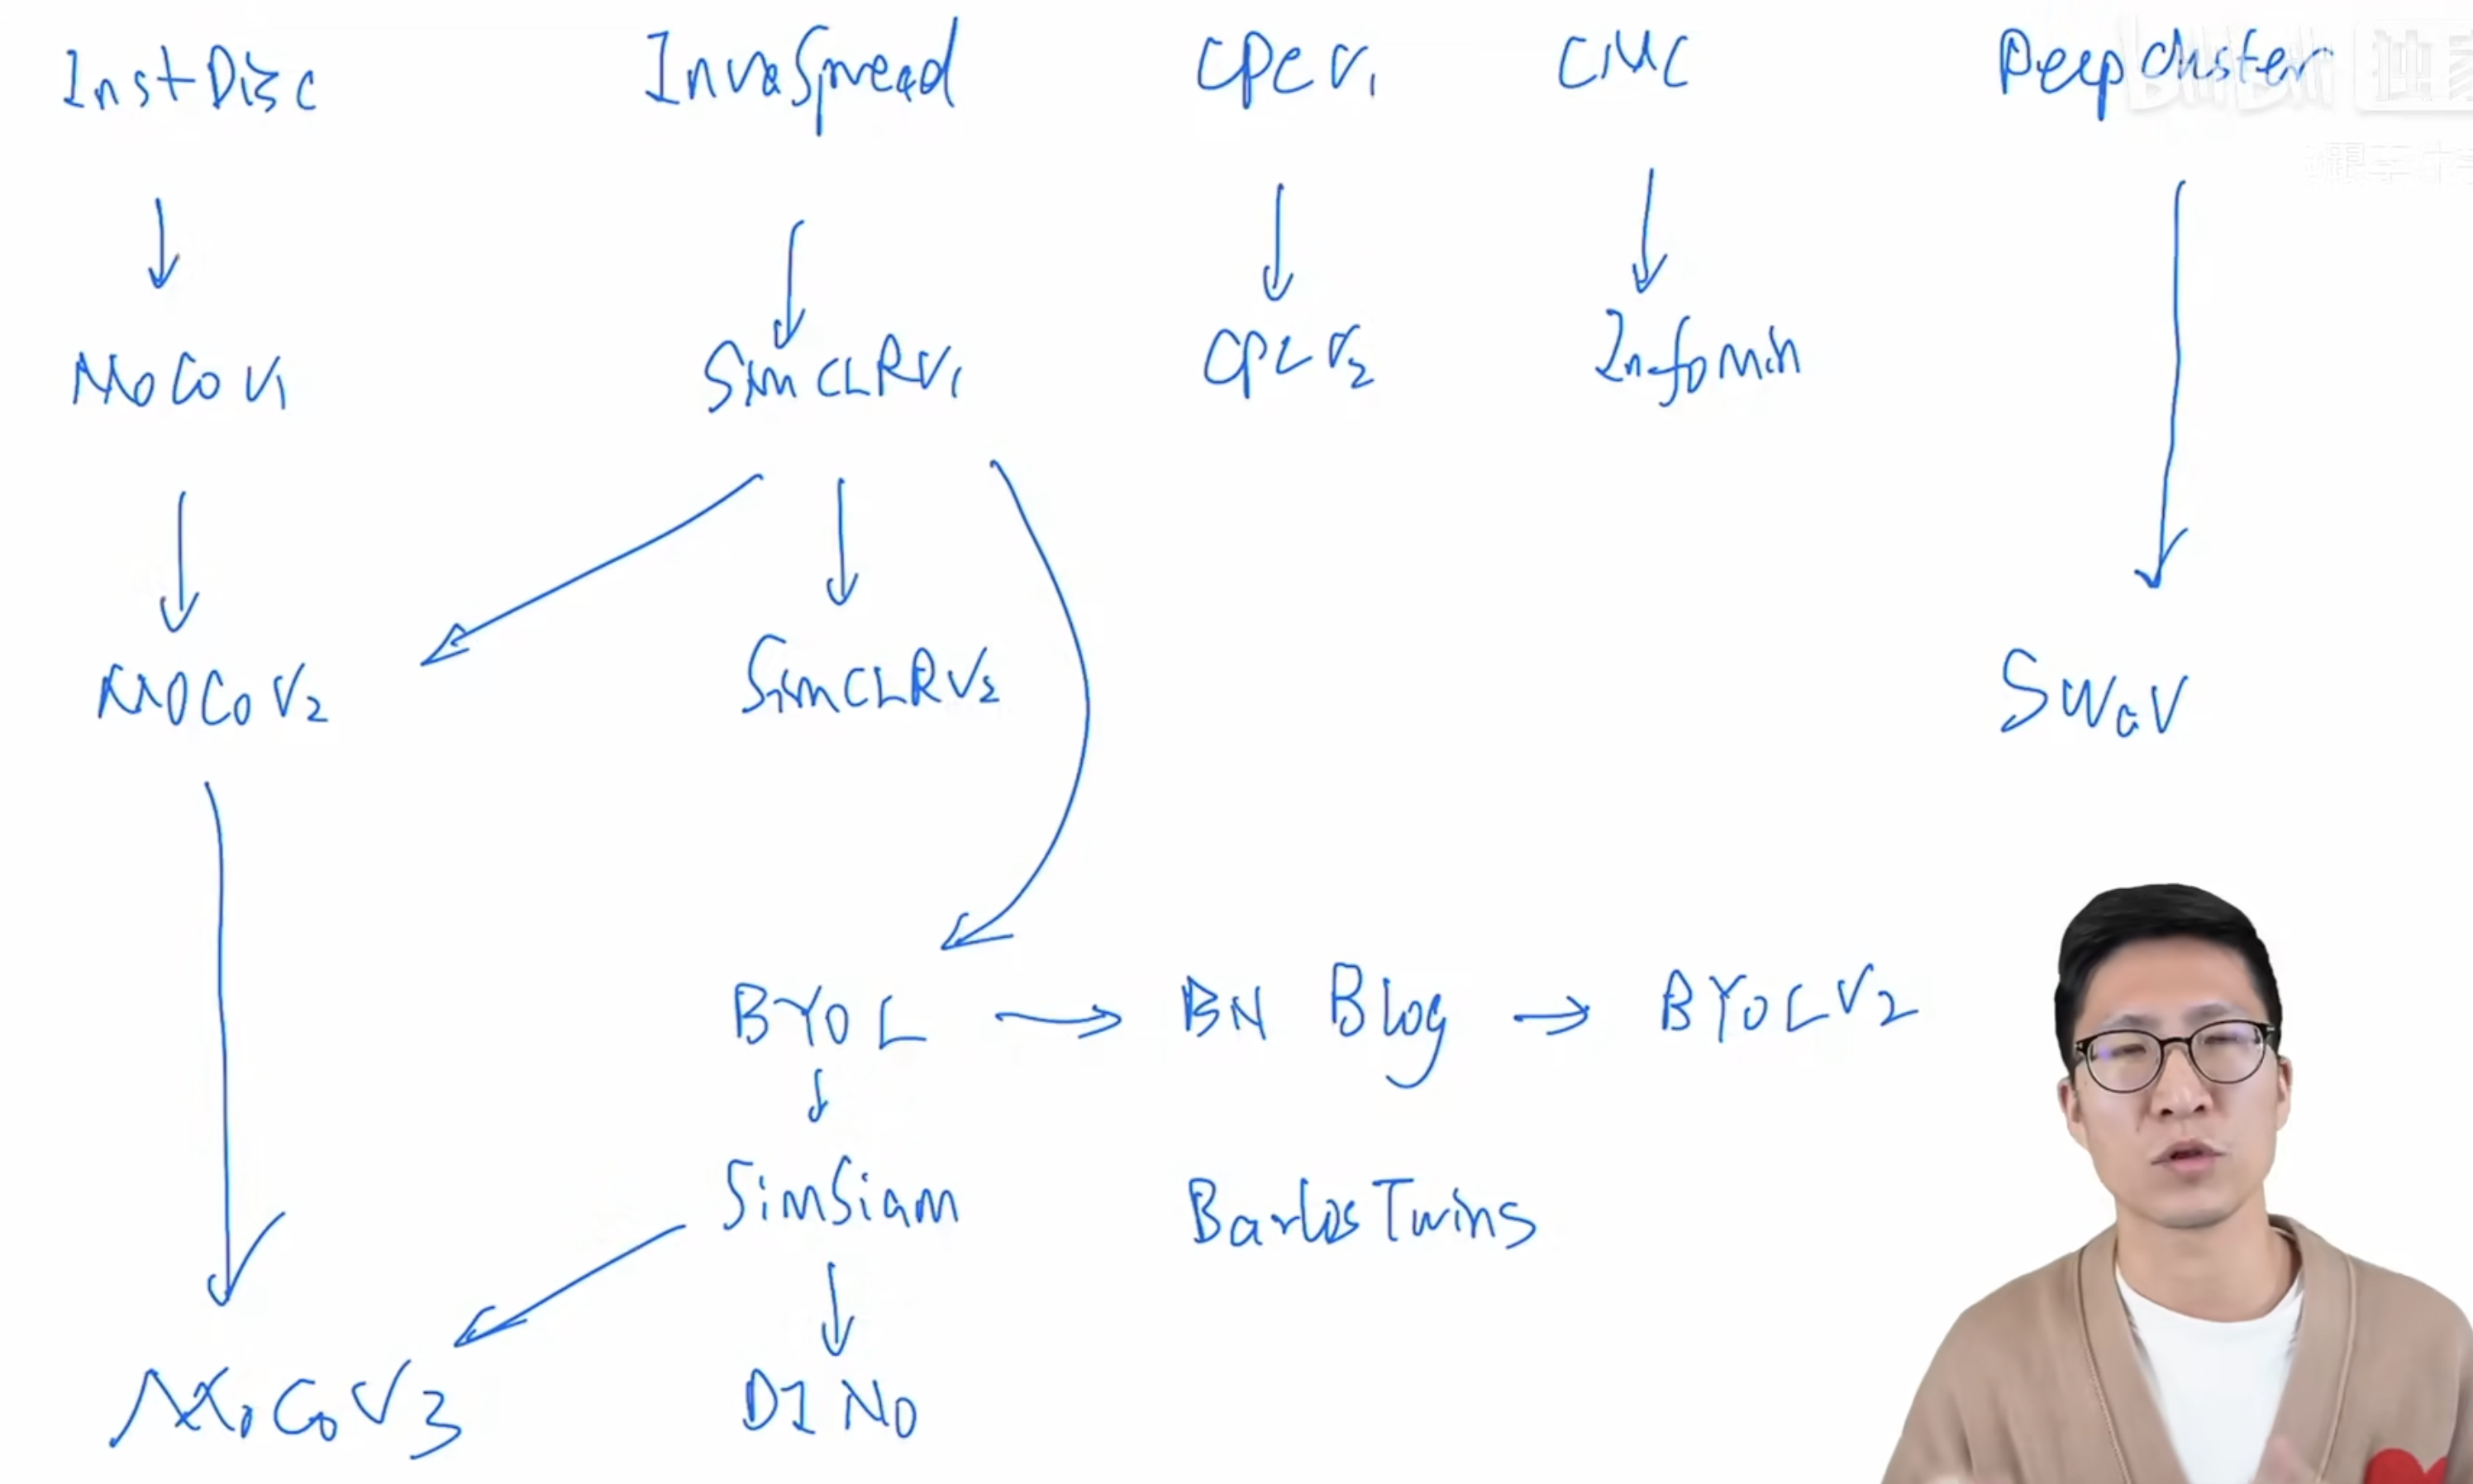 InstDisc InvaSpread CPCV1 CMC DeepCluster
MoCoV1 SimCLRV1 CPCV2 InfoMin
MoCoV2 SimCLRV2 SWaV
BYOL BN Blog BYOLV2
SimSiam BarlosTwins
MoCoV3 DINO